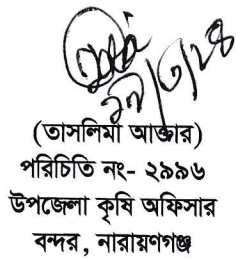 (তাসলিমা আক্তার)
পরিচিতি নং- ২৯৯৬
উপজেলা কৃষি অফিসার
বন্দর, নারায়ণগঞ্জ